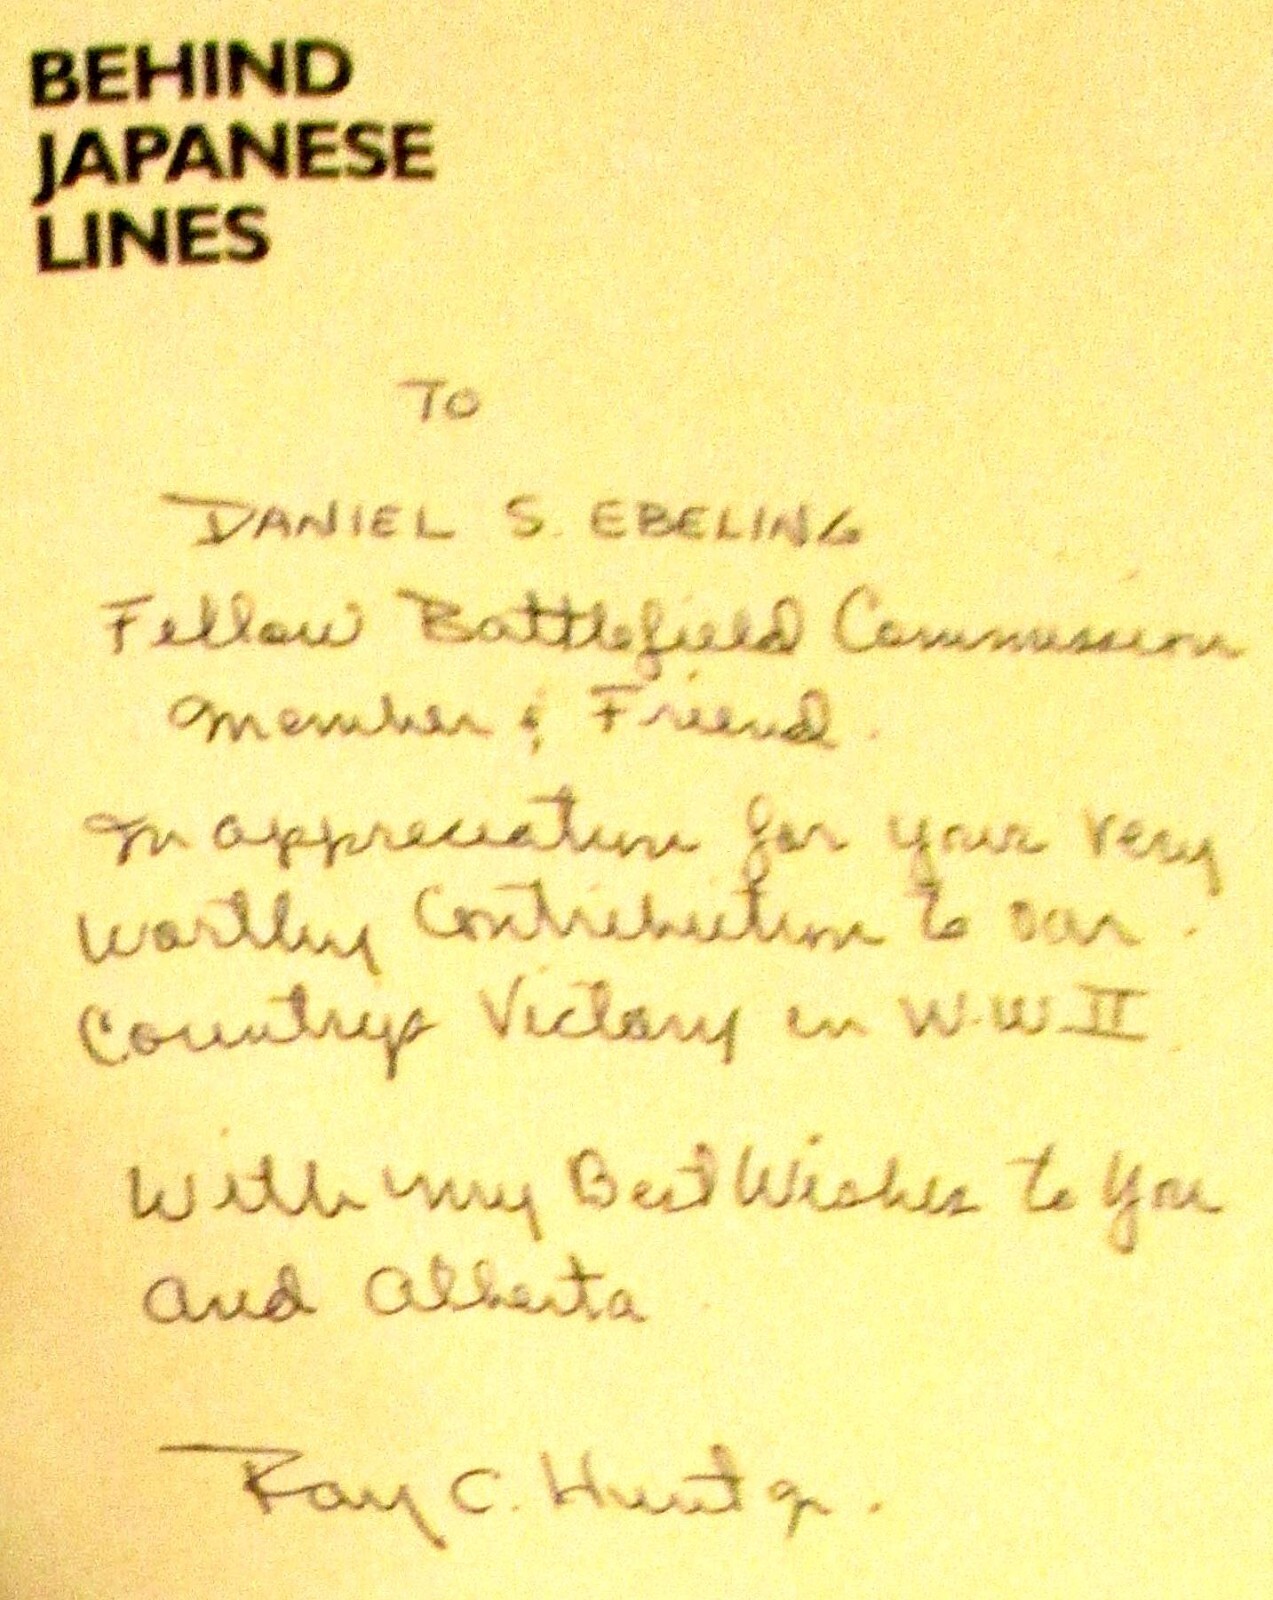 BEHIND
JAPANESE
LINES
To
DANIEL S. EBELING
Fellow Battlefield Commission
Member & Friend.
In appreciation for your very
worthy Contribution to our
Countrys Victory in W.W II
With my Best Wishes to You
and Alberta
Ray C. Hunt Jr.